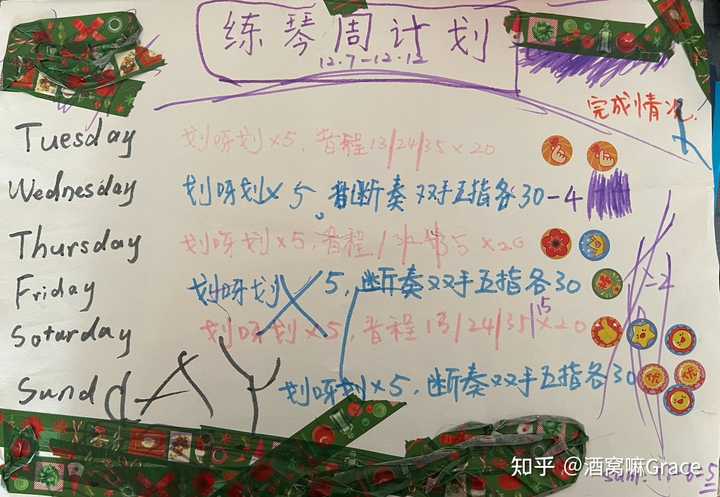 练琴周计划
12.7-12.12
完成情况
Tuesday 划呀划×5, 音程13/24/35×20
Wednesday 划呀划×5。断奏双手五指各30 -4
Thursday 划呀划×5, 音程 ×20
Friday 划呀划×5, 断奏双手五指各30 -2
Soturday 划呀划×5, 音程13/24/35×20 15
SundAY 划呀划×5, 断奏双手五指各30
知乎 @酒窝嘛Grace
sum: